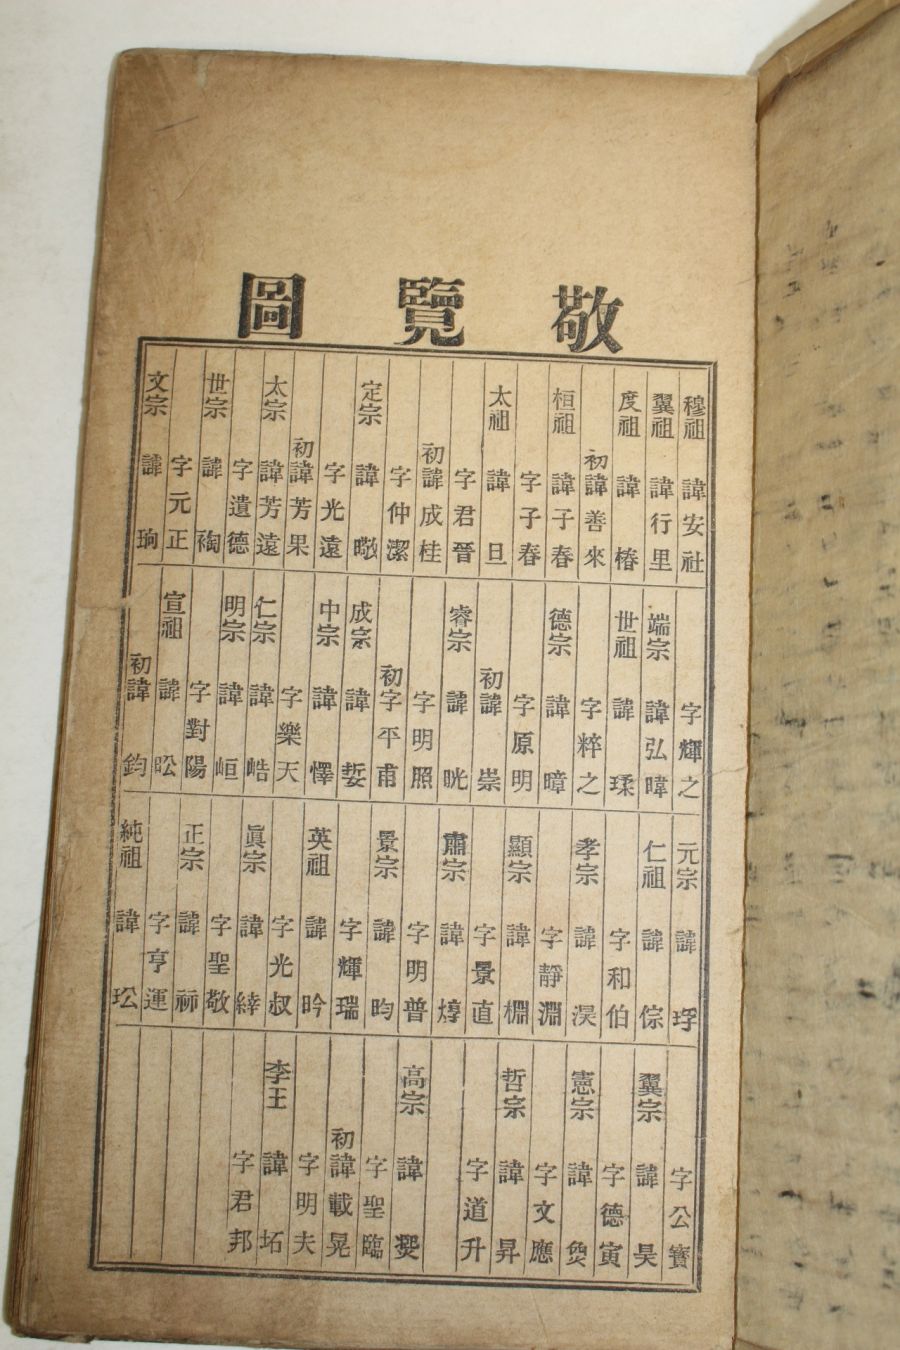 敬覽圖
穆祖 諱安社
翼祖 諱行里
度祖 諱椿
初諱善來
桓祖 諱子春
字子春
太祖 諱旦
字君晉
初諱成桂
字仲潔
定宗 諱曔
字光遠
初諱芳果
太宗 諱芳遠
字遺德
世宗 諱祹
字元正
文宗 諱珦
字輝之
端宗 諱弘暐
世祖 諱瑈
字粹之
德宗 諱暲
字原明
初諱崇
睿宗 諱晄
字明照
初字平甫
成宗 諱娎
中宗 諱懌
字樂天
仁宗 諱峼
明宗 諱峘
字對陽
宣祖 諱昖
初諱鈞
元宗 諱琈
仁祖 諱倧
字和伯
孝宗 諱淏
字靜淵
顯宗 諱棩
字景直
肅宗 諱焞
字明普
景宗 諱昀
字輝瑞
英祖 諱昑
字光叔
眞宗 諱緈
字聖敬
正宗 諱祘
字亨運
純祖 諱玜
字公寶
翼宗 諱旲
字德寅
憲宗 諱烉
字文應
哲宗 諱昇
字道升
高宗 諱㷩
字聖臨
初諱載晃
字明夫
李王 諱坧
字君邦